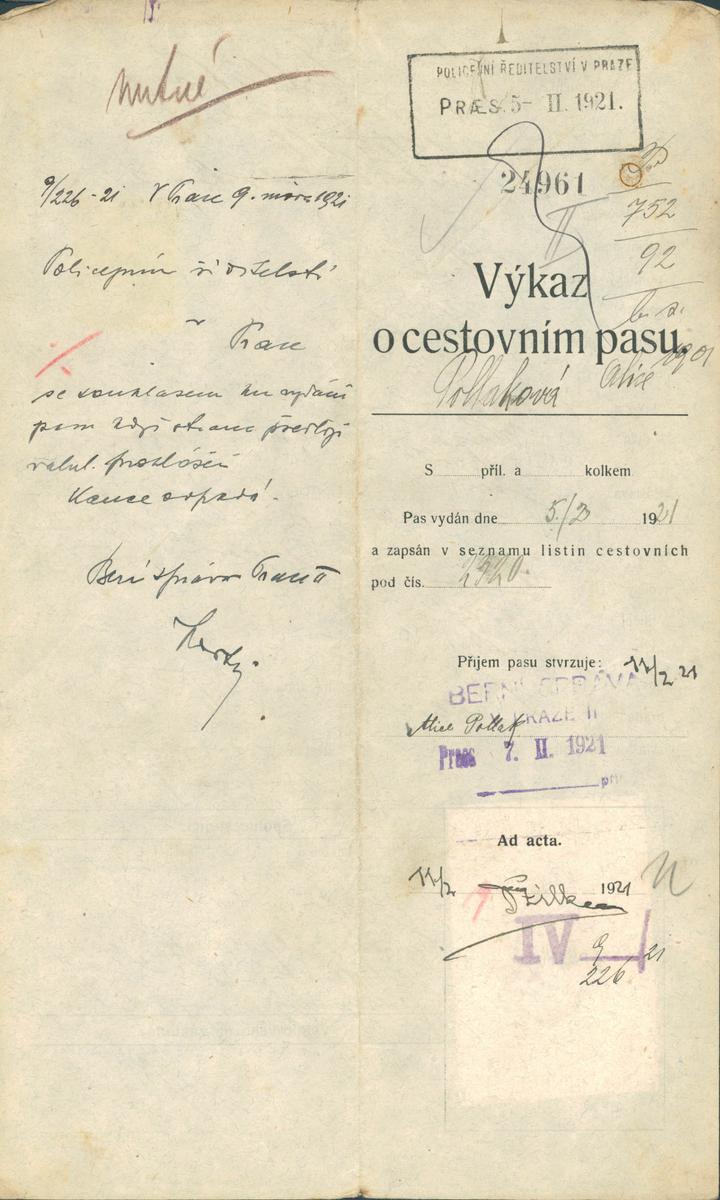 nutné
9/226-21 V Praze 9. února 1921
Policejním ředitelství
v Praze
se souhlasem ku vydání
pasu když strana předloží
Kauce odpadá.
Berní správa Praha II
POLICEJNÍ ŘEDITELSTVÍ V PRAZE
PRÆS. 5- II. 1921.
24961
II
752
92
Výkaz
o cestovním pasu
Pollaková Alice 1901
S příl. a kolkem
Pas vydán dne 5./2 1921
a zapsán v seznamu listin cestovních
pod čís. 2920
Příjem pasu stvrzuje: 11/2 21
BERNÍ SPRÁVA
V PRAZE II
Alice Pollak
Praes 7. II. 1921
Ad acta.
11/2 1921
IV 9 21
226